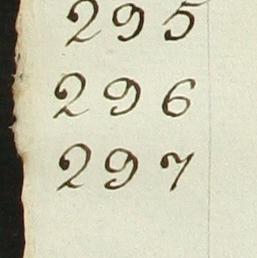 295
296
297